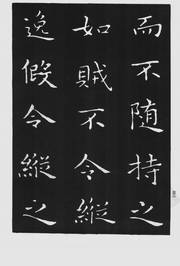 而不随持之
如賊不令縦
逸假令縦之